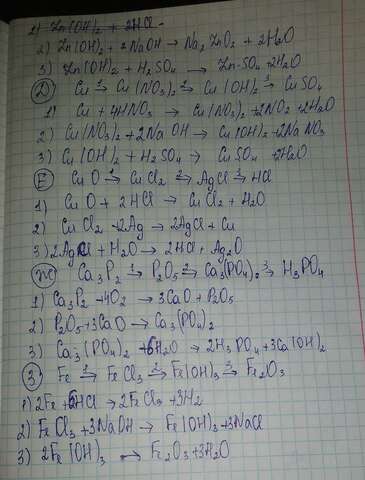 1) Zn(OH)2 + 2HCl -
2) Zn(OH)2 + 2NaOH → Na2ZnO2 + 2H2O
3) Zn(OH)2 + H2SO4 → ZnSO4 + 2H2O
Д) Cu 1→ Cu(NO3)2 2→ Cu(OH)2 3→ CuSO4
1) Cu + 4HNO3 → Cu(NO3)2 + 2NO2 + 2H2O
2) Cu(NO3)2 + 2NaOH → Cu(OH)2 + 2NaNO3
3) Cu(OH)2 + H2SO4 → CuSO4 + 2H2O
Е) CuO 1→ CuCl2 2→ AgCl 3→ HCl
1) CuO + 2HCl → CuCl2 + H2O
2) CuCl2 + 2Ag → 2AgCl + Cu
3) 2AgCl + H2O → 2HCl + Ag2O
Ж) Ca3P2 1→ P2O5 2→ Ca3(PO4)2 3→ H3PO4
1) Ca3P2 + 4O2 → 3CaO + P2O5
2) P2O5 + 3CaO → Ca3(PO4)2
3) Ca3(PO4)2 + 6H2O → 2H3PO4 + 3Ca(OH)2
З) Fe 1→ FeCl3 2→ Fe(OH)3 3→ Fe2O3
1) 2Fe + 6HCl → 2FeCl3 + 3H2
2) FeCl3 + 3NaOH → Fe(OH)3 + 3NaCl
3) 2Fe(OH)3 → Fe2O3 + 3H2O